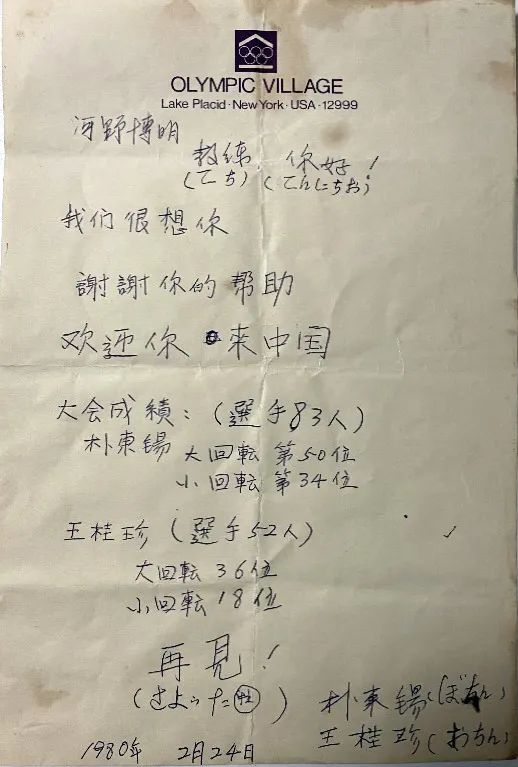 OLYMPIC VILLAGE
Lake Placid · New York · USA · 12999
河野博明
教练 你好!
(こち) (こんにちお)
我们很想你
謝謝你的帮助
欢迎你来中国
大会成績:(選手83人)
朴東锡 大回転 第50位
小回転 第34位
王桂珍(選手52人)
大回転 36位
小回転 18位
再見!
(さよった)
朴東锡(ぼちん)
王桂珍(おちん)
1980年 2月24日